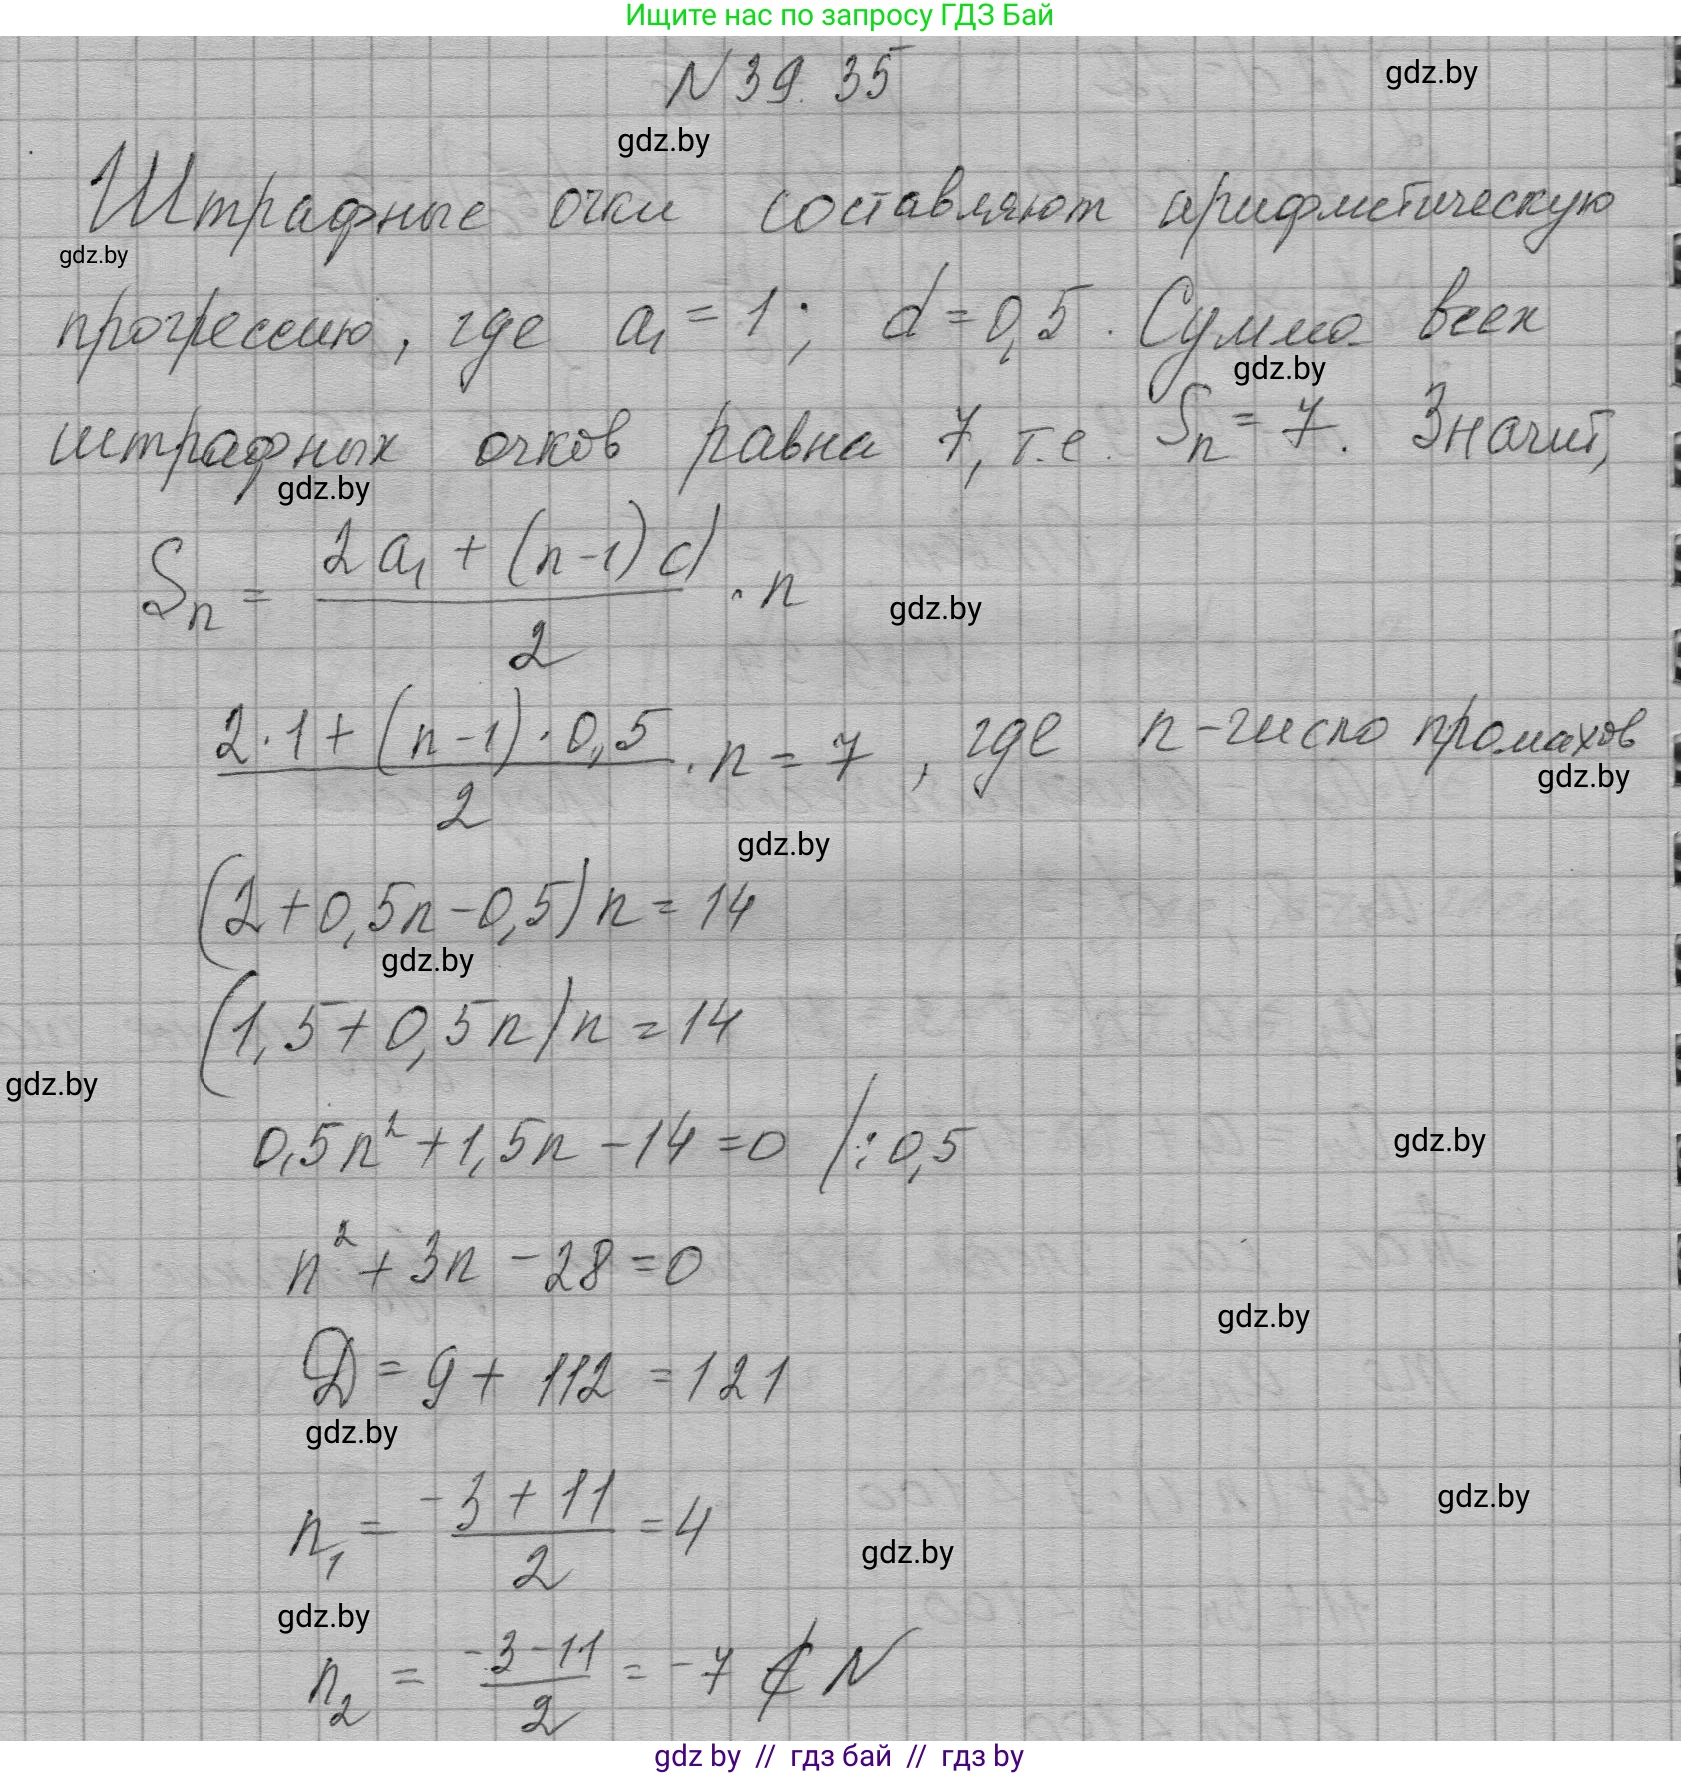 Ищите нас по запросу ГДЗ Бай
N 39.35
gdz.by
gdz.by
Штрафные очки составляют арифметическую
gdz.by
прогрессию, где a₁ = 1; d = 0,5. Сумма всех
gdz.by
штрафных очков равна 7, т.е. Sₙ = 7. Значит,
gdz.by
Sₙ = (2a₁ + (n-1)d)/2 · n
gdz.by
(2·1 + (n-1)·0,5)/2 · n = 7, где n - число промахов
gdz.by
gdz.by
(2+0,5n-0,5)n = 14
gdz.by
(1,5+0,5n)n = 14
gdz.by
0,5n² + 1,5n - 14 = 0 /:0,5
gdz.by
n² + 3n - 28 = 0
gdz.by
D = 9 + 112 = 121
gdz.by
n₁ = (-3 + 11)/2 = 4
gdz.by
gdz.by
gdz.by
n₂ = (-3-11)/2 = -7 ∉ N
gdz by // гдз бай // гдз by